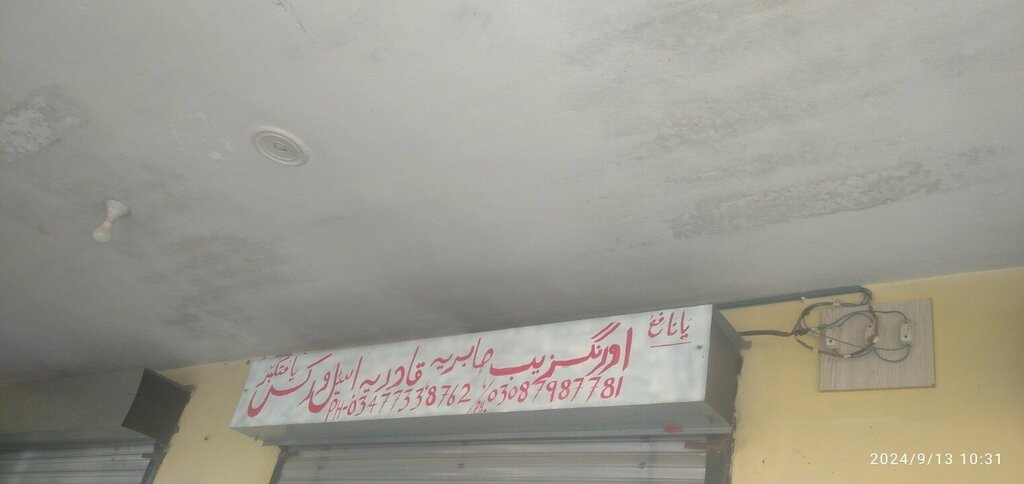 یا نافعُ
اورنگزیب صابریہ قادریہ اسٹیل ورکس
PH-03477338762 / PH. 03087987781
2024/9/13 10:31